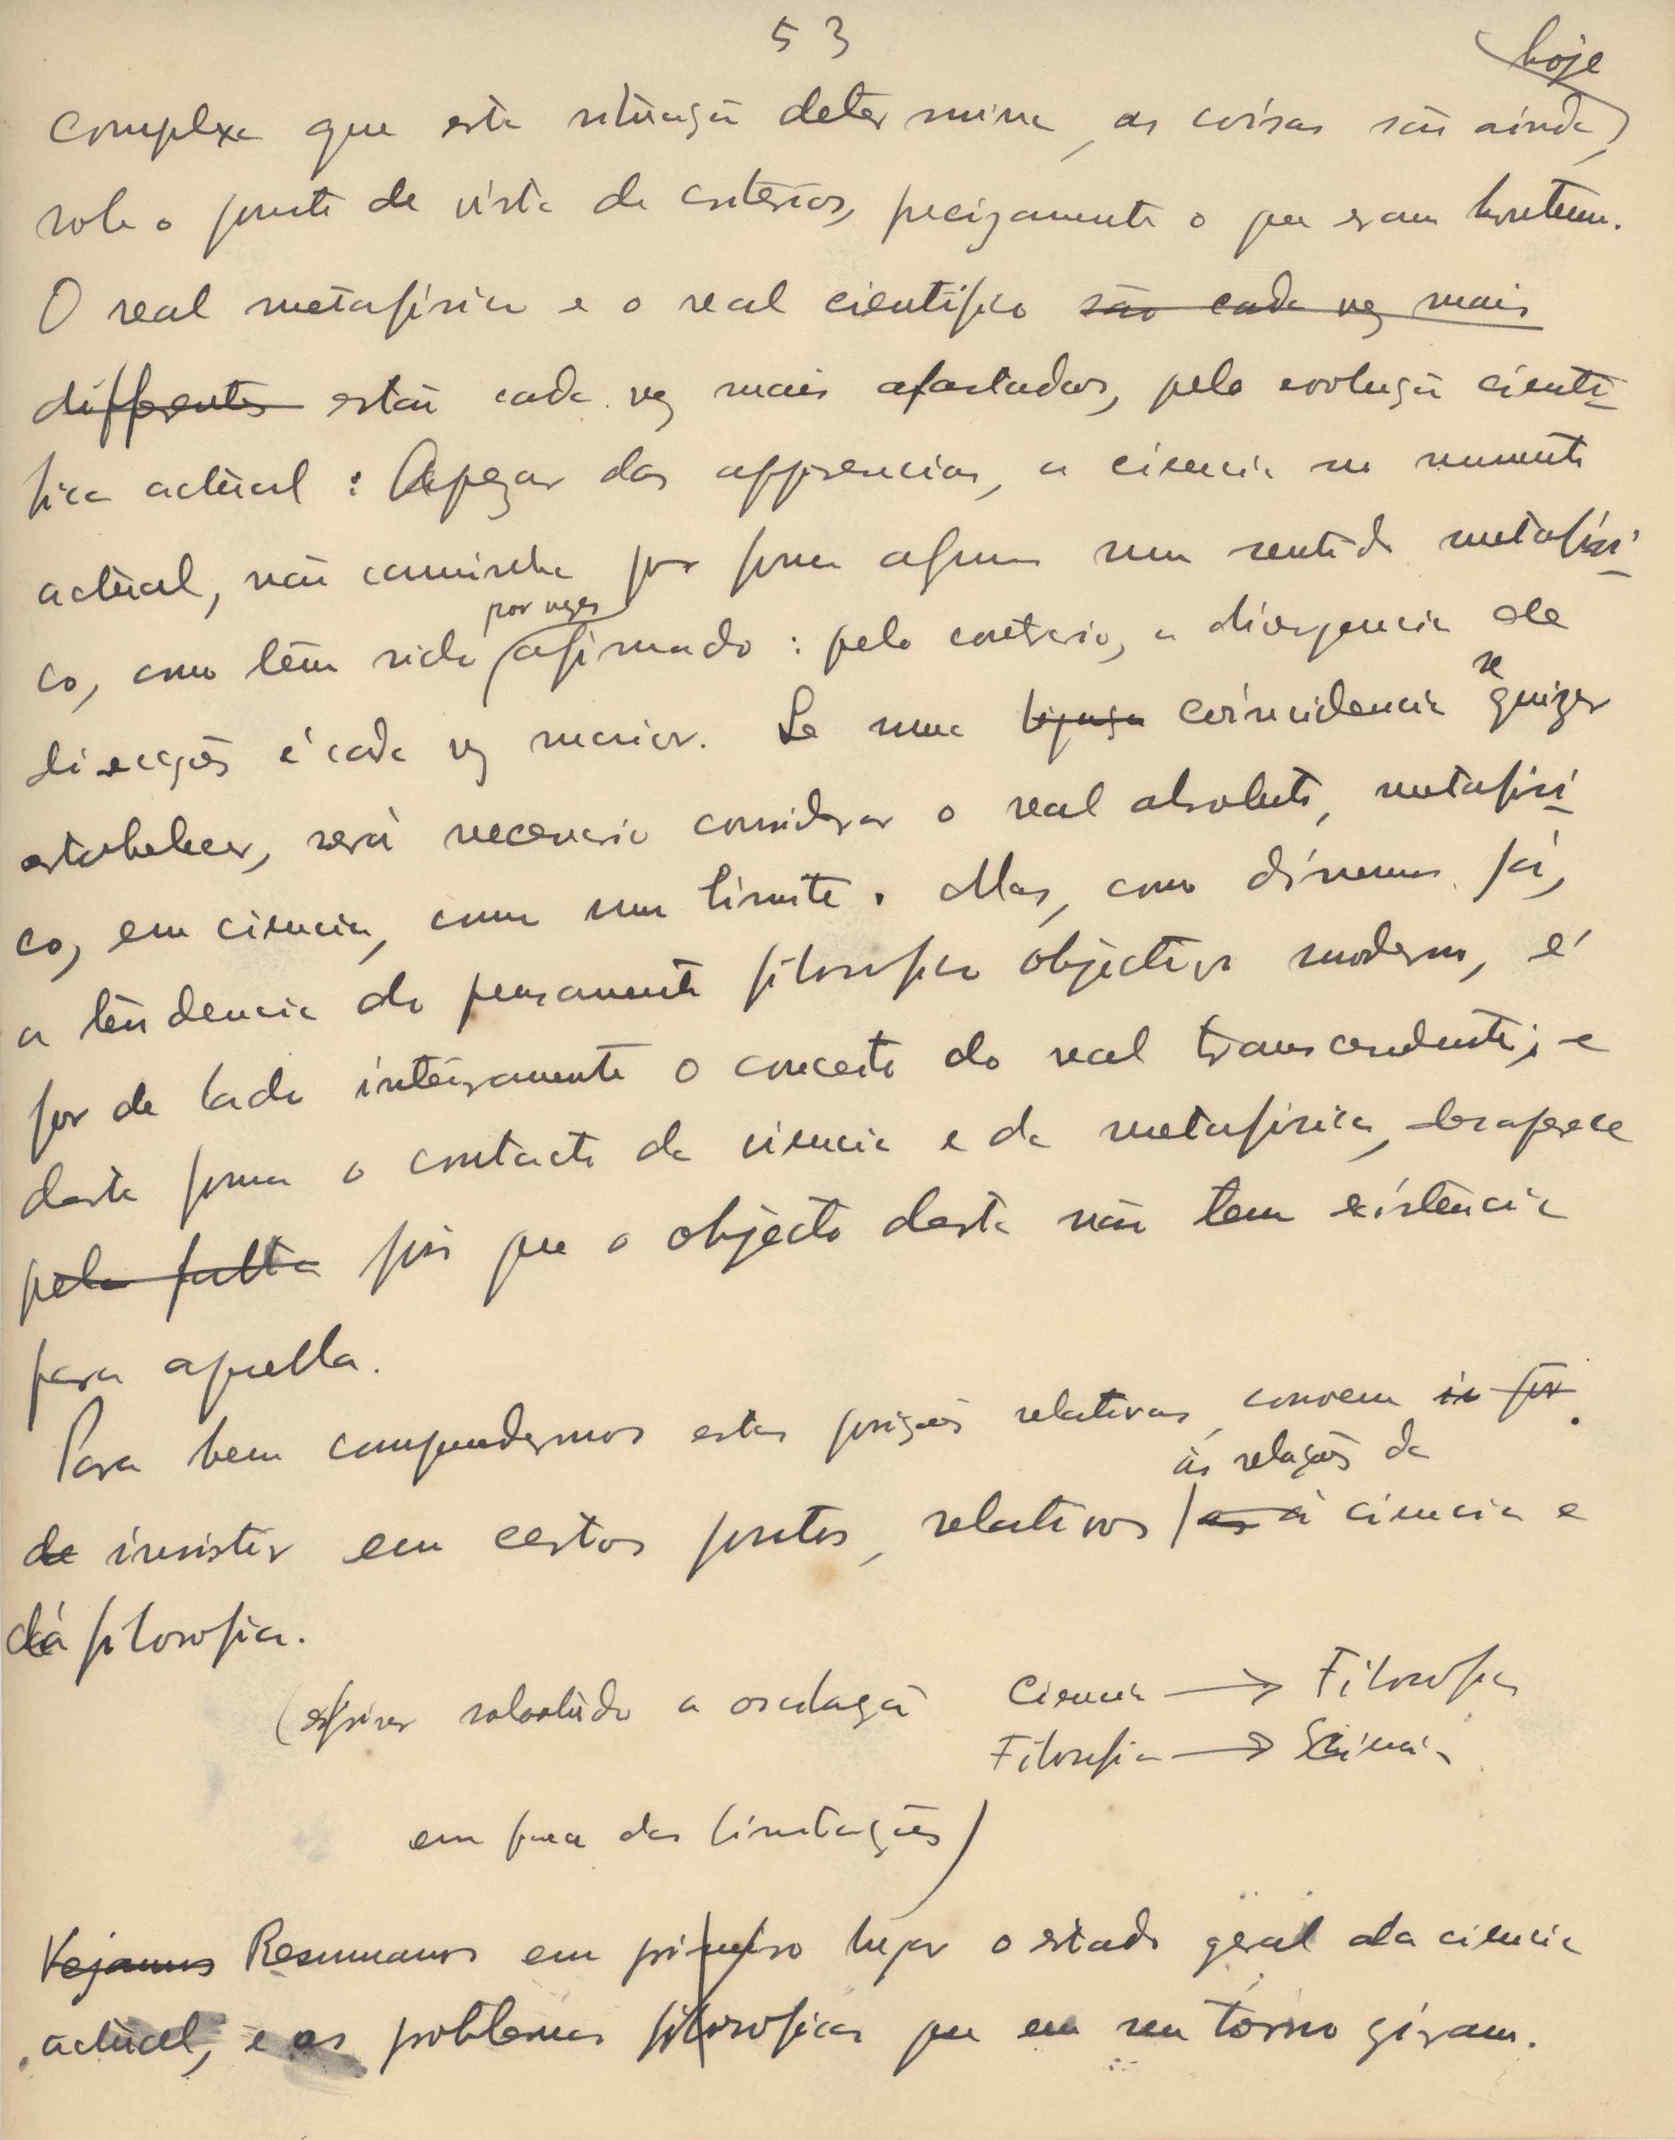 53
hoje
complexa que esta situação determina, as coisas são ainda,
sob o ponto de vista de criterios, precizamente o que eram hontem.
O real metafisico e o real cientifico são cada vez mais
differentes estão cada vez mais afastados, pela evolução cienti-
fica actual : Apezar das apparencias, a ciencia no momento
actual, não caminha por forma alguma num sentido metafisi-
por vezes
co, como têm sido afirmado : pelo contrario, a divergencia de
se
direcções é cada vez maior. Se uma coincidencia quizer
estabelecer, será necessario considerar o real absoluto, metafisi-
co, em ciencia, como um limite. Mas, como dissemos já,
a tendencia do pensamento filosofico objectivo moderno, é
por de lado inteiramente o conceito do real transcendente; e
desta forma o contacto da ciencia e da metafisica, desaparece
pela falta pois que o objecto desta não tem existencia
para aquella.
Para bem comprehendermos estas posições relativas, convem ir por
às relações da
de insistir em certos pontos, relativos as á ciencia e
dá filosofia.
(esfriar sobretudo a oscilação Ciencia → Filosofia
Filosofia → Sciencia
em face das limitações)
Vejamos Resumamos em primeiro lugar o estado geral da ciencia
actual, e os problemas filosoficos que em seu tôrno giram.